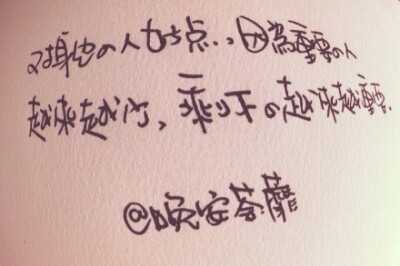 对身边の人好点.,因為重要の人
越来越少,剩下の越来越重要.
@晚安荼蘼